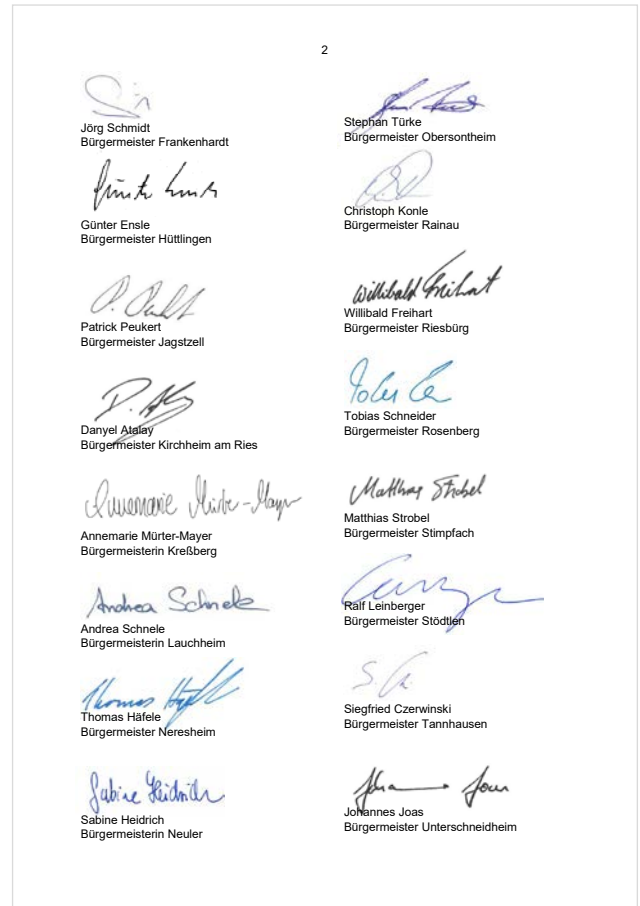 2
Jörg Schmidt
Bürgermeister Frankenhardt
Günter Ensle
Bürgermeister Hüttlingen
P. Peukert
Patrick Peukert
Bürgermeister Jagstzell
Danyel Atalay
Bürgermeister Kirchheim am Ries
Annemarie Mürter-Mayer
Annemarie Mürter-Mayer
Bürgermeisterin Kreßberg
Andrea Schnele
Andrea Schnele
Bürgermeisterin Lauchheim
Thomas Häfele
Thomas Häfele
Bürgermeister Neresheim
Sabine Heidrich
Sabine Heidrich
Bürgermeisterin Neuler
Stephan Türke
Bürgermeister Obersontheim
Christoph Konle
Bürgermeister Rainau
Willibald Freihart
Willibald Freihart
Bürgermeister Riesbürg
Tobias Schneider
Bürgermeister Rosenberg
Matthias Strobel
Matthias Strobel
Bürgermeister Stimpfach
Ralf Leinberger
Bürgermeister Stödtlen
Siegfried Czerwinski
Bürgermeister Tannhausen
Johannes Joas
Bürgermeister Unterschneidheim